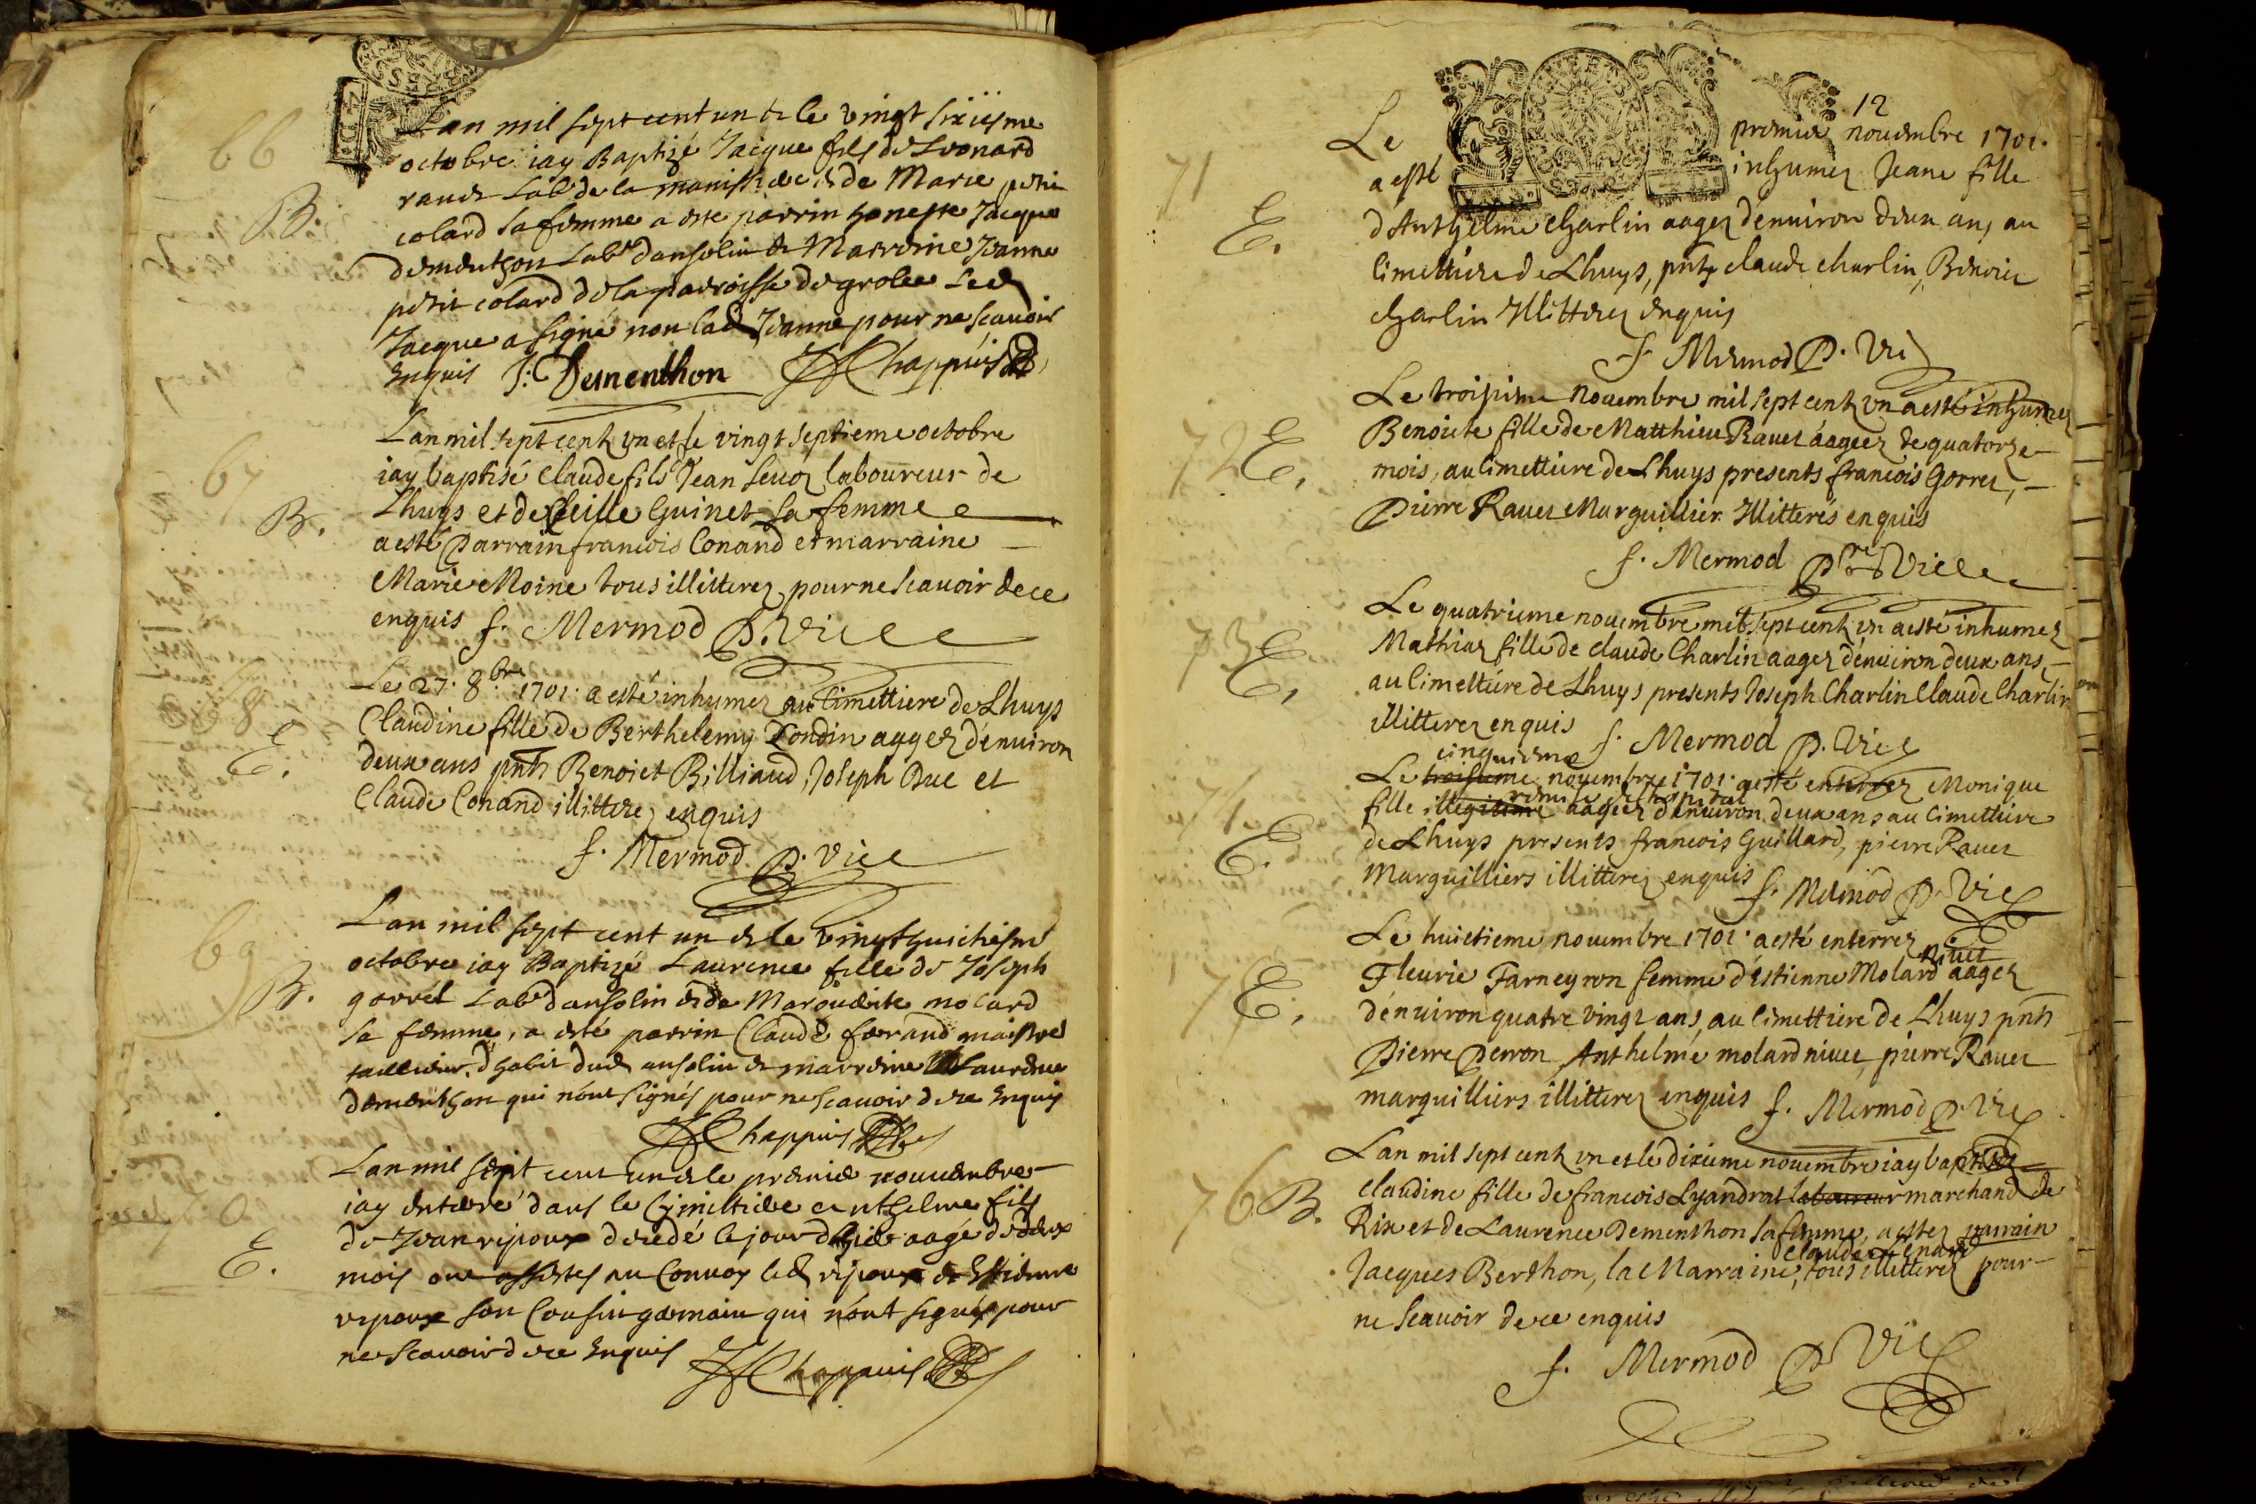 66
B.
Lan mil sept cent un & le vingt sixiesme
octobre iay Baptizé Jacque fils de Leonard
ravet Labr de la & de Marie petit
colard sa femme a esté parrin honeste Jacque
dementhon Labr dansolin & Marreine Jeanne
petit colard de la parroisse de grolee Led
Jacque a signé non lad Jeanne pour ne scavoir
Enquis J: Dementhon Chappuis
67
B.
Lan mil sept cent vn et le vingt septieme octobre
iay baptisé Claude fils Jean Sevoz laboureur de
Lhuys et de Guinet sa femme
a esté Parrain francois Conand et marraine
Marie Moine tous illitterez pour ne scavoir de ce
enquis f. Mermod P. Vice
68
E.
Le 27. 8bre 1701. a esté inhumez au Cimettiere de Lhuys
Claudine fille de Berthelemy Londin aagez d'enuiron
deux ans pnts Benoict Billiaud, Joseph Duc et
Claude Conand illitterez enquis
f. Mermod P. Vice
69
B.
Lan mil sept cent un & le vingt huictiesme
octobre iay Baptizé Laurence fille de Joseph
gorrel Labr dansolin & de Marguerite molard
sa femme, a esté parrin Claude ferrand maistre
tallieur d'habit dud ansolin & marreine Laurence
dementhon qui n'ont signés pour ne scavoir de ce Enquis
Chappuis
70
E.
Lan mil sept cent un & le premier nouvembre
iay enterré dans le Cymittiere anthelme fils
de Jean ripoux decedé le jour d'hier aagé de deux
mois ont assistes au Convoy led ripoux & Estienne
ripoux son Cousin germain qui n'ont signés pour
ne scavoir de ce Enquis Chappuis
12
71
E.
Le premier nouembre 1701.
a esté inhumez Jeane fille
d'Anthelme Charlin aagez d'enuiron deux ans au
Cimettiere de Lhuys, pnts claude charlin, Benoict
charlin Illitterez enquis
f. Mermod P. Vic
72
E.
Le troisieme Nouembre mil sept cent vn a esté inhumez
Benoiste fille de Matthieu Rauet aagez de quatorze
mois, au Cimettiere de Lhuys presents francois Gorrez,
Pierre Rauet Marguillier Illitterés enquis
f. Mermod Ptre Vice
73
E.
Le quatrieme nouembre mil sept cent vn a esté inhumez
Mathiaz fille de claude Charlin aagez d'enuiron deux ans,
au Cimettiere de Lhuys presents Joseph Charlin Claude Charlin
illitterez enquis f. Mermod P. Vice
74
E.
cinquieme
Le troisieme nouembre 1701. a esté enterrez Monique
fille illegitime aagez d'enuiron deux ans au Cimettiere
de Lhuys presents francois Guillard, pierre Rauet
Marguilliers illitterez enquis f. Mermod P. Vic
75
E.
Le huictieme nouembre 1701. a esté enterrez
niuet
Fleurie Farneyron femme d'estienne Molard aagez
d'enuiron quatre vingt ans, au Cimettiere de Lhuys pnts
Pierre Perron, Anthelme molard niuet, pierre Rauet
marguilliers illitterez enquis f. Mermod P. Vic
76
B.
Lan mil sept cent vn et le dixieme nouembre iay baptisez
claudine fille de francois Lyandrat laboureur marchand de
Rix et de Laurence Dementhon sa femme, a estez parrain
Jacques Berthon, la Marraine, Claude tous illitterez pour
ne scauoir de ce enquis
f. Mermod P. Vic